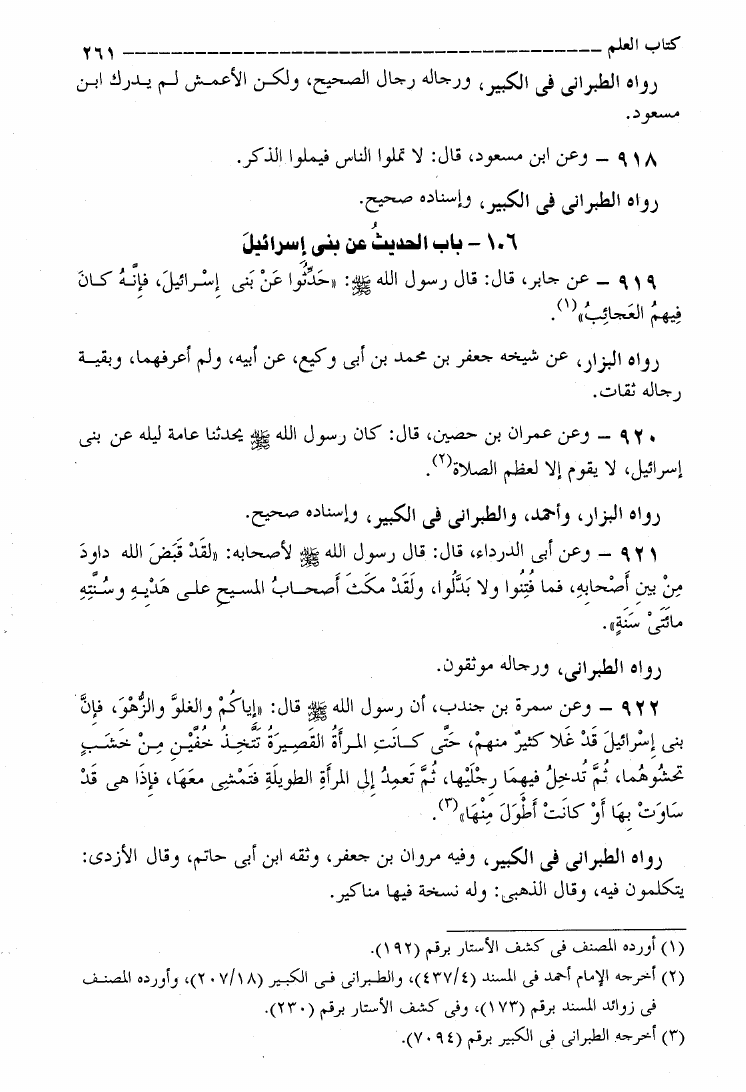 كتاب العلم ــــــــــــــــــــــــــــــــــــــــــــــــ ٢٦١
رواه الطبرانى فى الكبير، ورجاله رجال الصحيح، ولكن الأعمش لم يدرك ابن
مسعود.
٩١٨ – وعن ابن مسعود، قال: لا تملوا الناس فيملوا الذكر.
رواه الطبرانى فى الكبير، وإسناده صحيح.
١٠٦ – باب الحديثُ عن بنى إسرائيلَ
٩١٩ – عن جابر، قال: قال رسول الله ﷺ: «حَدِّثُوا عَنْ بَنى إِسْرائيلَ، فإنَّهُ كانَ
فِيهمُ العَجائِبُ»(١).
رواه البزار، عن شيخه جعفر بن محمد بن أبى وكيع، عن أبيه، ولم أعرفهما، وبقية
رجاله ثقات.
٩٢٠ – وعن عمران بن حصين، قال: كان رسول الله ﷺ يحدثنا عامة ليله عن بنى
إسرائيل، لا يقوم إلا لعظم الصلاة(٢).
رواه البزار، وأحمد، والطبرانى فى الكبير، وإسناده صحيح.
٩٢١ – وعن أبى الدرداء، قال: قال رسول الله ﷺ لأصحابه: «لقَدْ قَبَضَ الله داودَ
مِنْ بينِ أَصْحابِهِ، فما فُتِنُوا ولا بَدَّلُوا، ولَقَدْ مكَثَ أَصحابُ المسيحِ على هَدْيِهِ وسُنَّتِهِ
مائَتَىْ سَنَةٍ».
رواه الطبرانى، ورجاله موثقون.
٩٢٢ – وعن سمرة بن جندب، أن رسول الله ﷺ قال: «إياكُمْ والغلوَّ والزُّهْوَ، فإنَّ
بنى إِسْرائيلَ قَدْ غَلا كثيرٌ منهمْ، حَتَّى كانَتِ المرأةُ القصيرَةُ تَتَّخِذُ خُفَّيْنِ مِنْ خَشَبٍ
تحشُوهُما، ثُمَّ تُدخِلُ فيهِمَا رِجْلَيْها، ثُمَّ تَعمِدُ إلى المرأةِ الطويلَةِ فَتمْشِى معَهَا، فإذَا هى قَدْ
سَاوَتْ بِهَا أوْ كانَتْ أَطْوَلَ مِنْهَا»(٣).
رواه الطبرانى فى الكبير، وفيه مروان بن جعفر، وثقه ابن أبى حاتم، وقال الأزدى:
يتكلمون فيه، وقال الذهبى: وله نسخة فيها مناكير.
(١) أورده المصنف فى كشف الأستار برقم (١٩٢).
(٢) أخرجه الإمام أحمد فى المسند (٤٣٧/٤)، والطبرانى فى الكبير (٢٠٧/١٨)، وأورده المصنف
فى زوائد المسند برقم (١٧٣)، وفى كشف الأستار برقم (٢٣٠).
(٣) أخرجه الطبرانى فى الكبير برقم (٧٠٩٤).